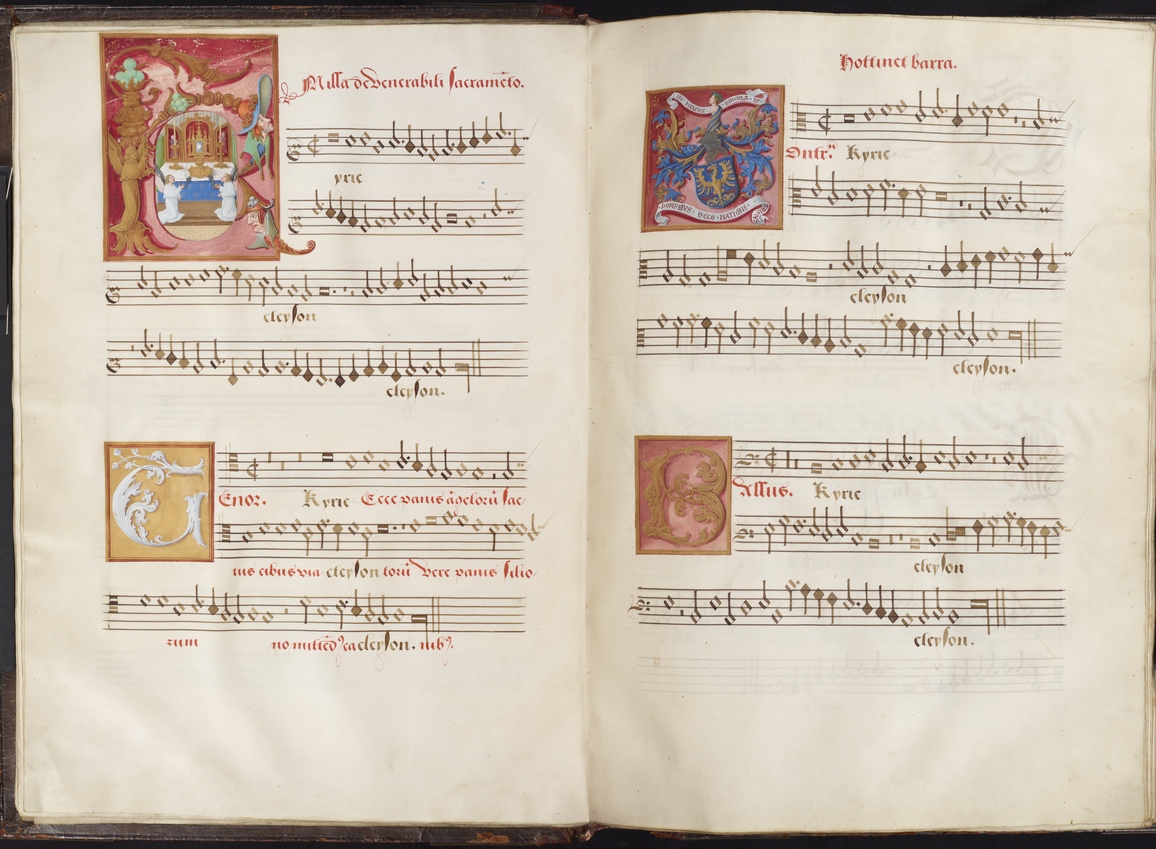 Missa de Venerabili sacramēto.
yrie
eleyson
eleyson.
Enor. Kyrie Ecce panis āgelorū fac
tus cibus via eleyson torū Vere panis filio
rum no mittēd⁹ ca eleyson. nib⁹.
Hottinet barra.
Kyrie
eleyson
eleyson.
assus. Kyrie
eleyson
eleyson.